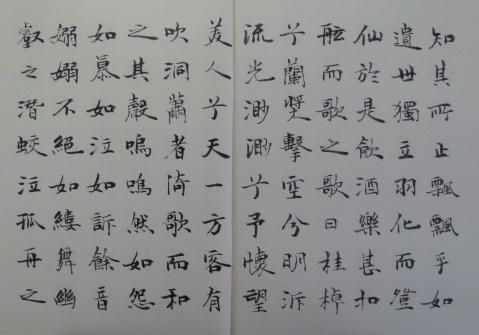 知其所止飄飄乎如
遺世獨立羽化而登
仙於是飲酒樂甚扣
舷而歌之歌曰桂棹
兮蘭槳擊空兮明泝
流光渺渺兮予懷望
美人兮天一方客有
吹洞蕭者倚歌而和
之其聲嗚嗚然如怨
如慕如泣如訴餘音
嫋嫋不絕如縷舞幽
壑之潛蛟泣孤舟之